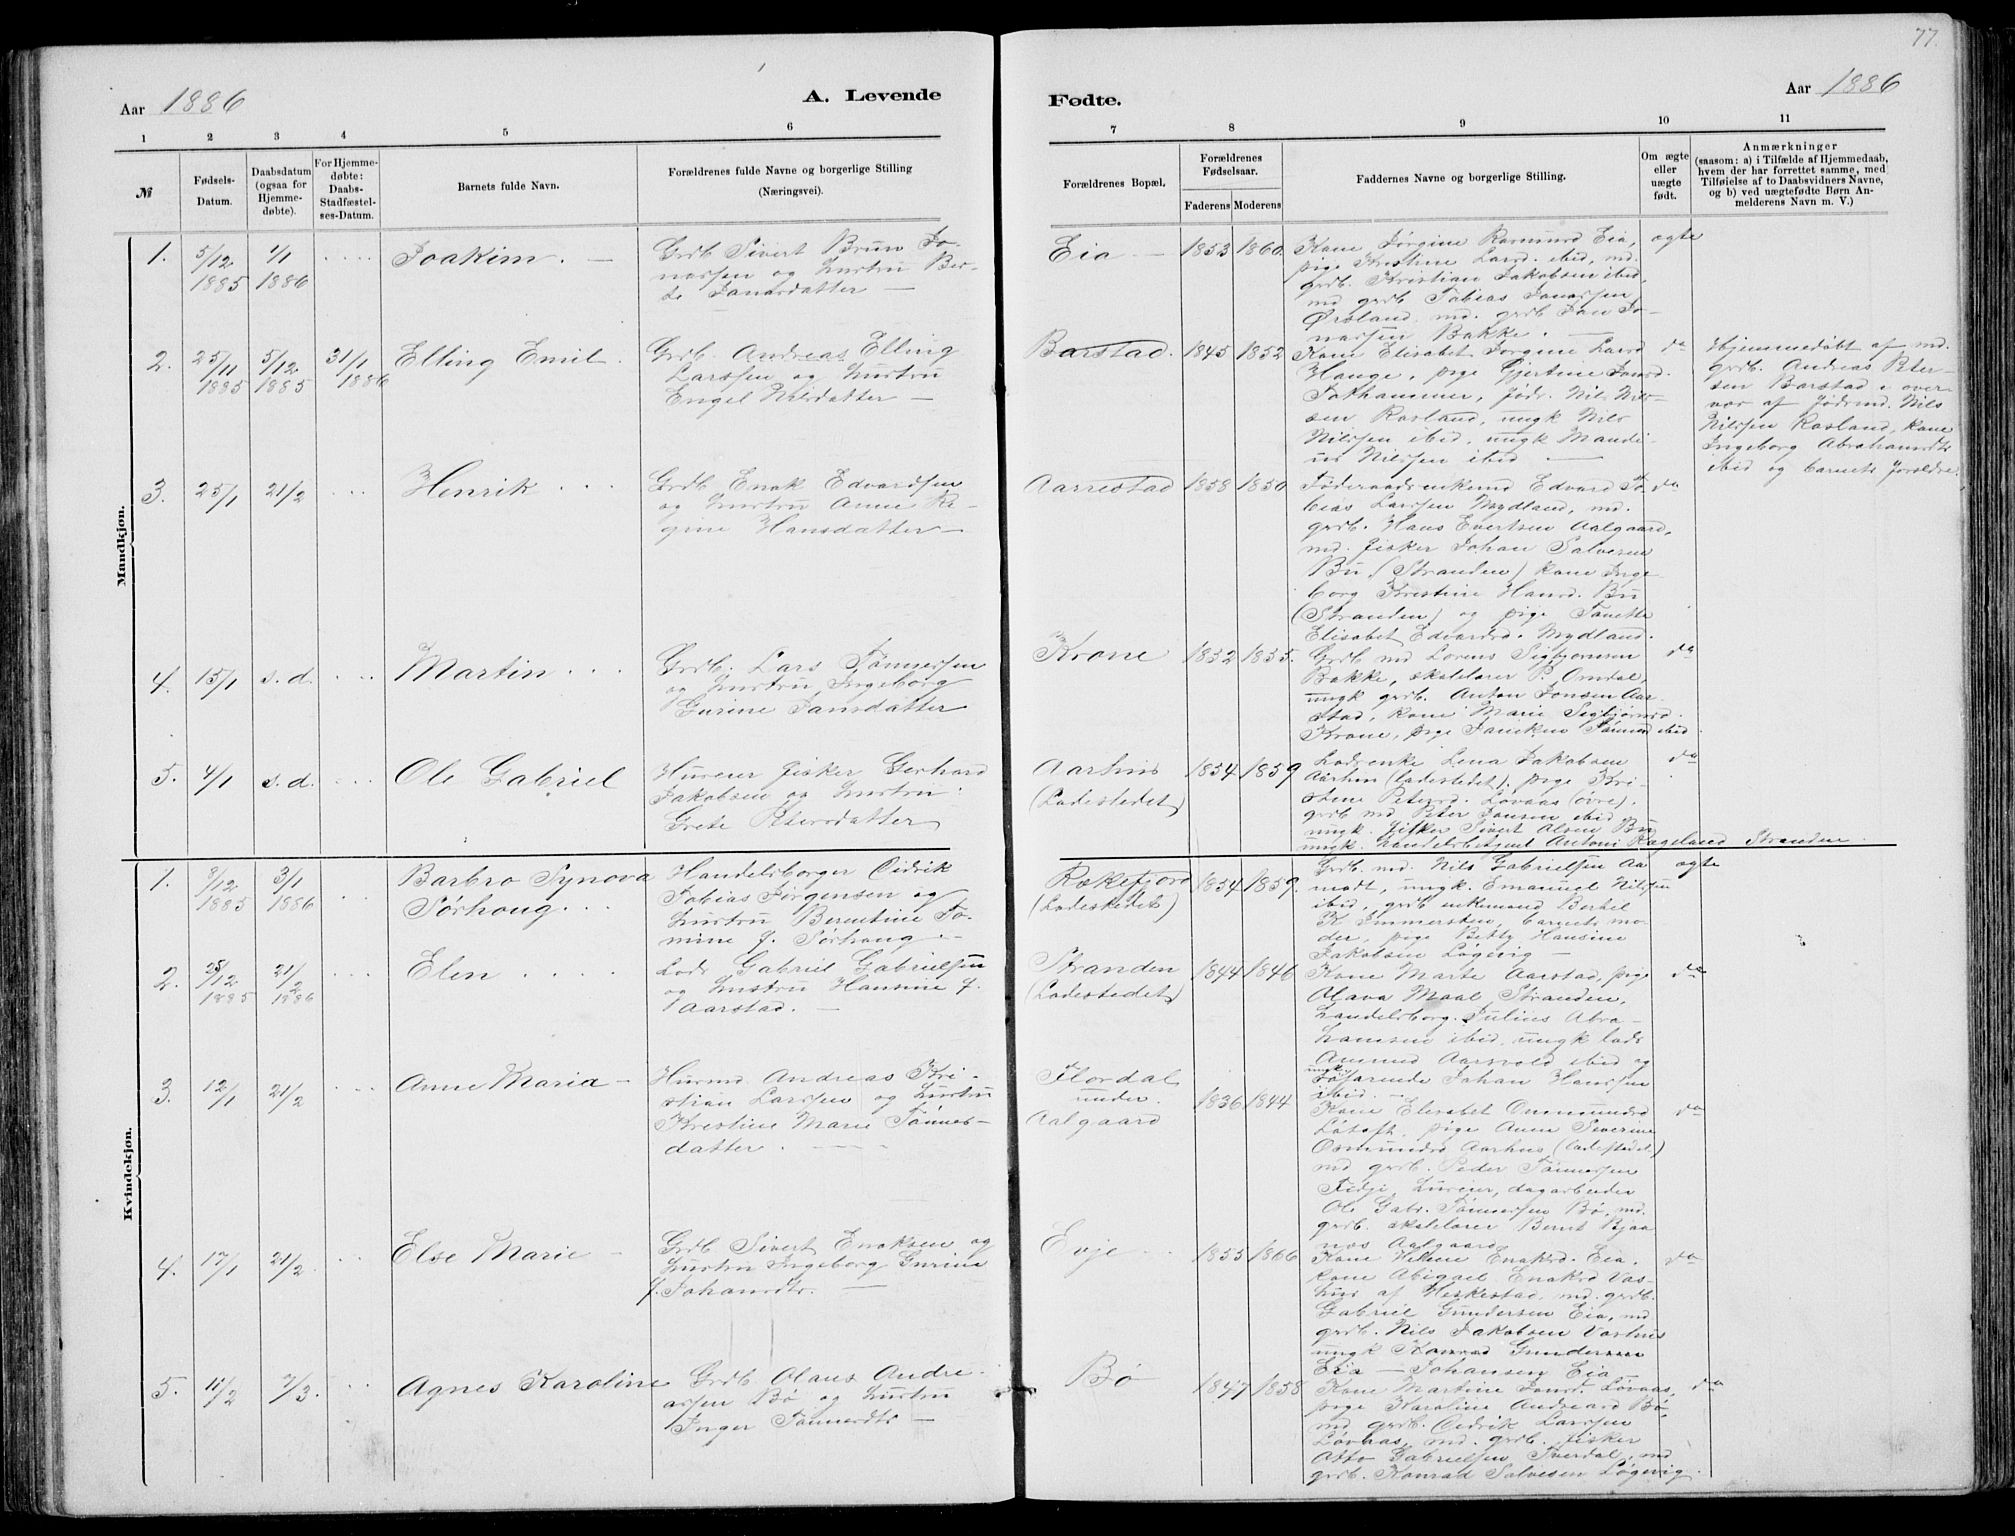 77.
Aar 1886
A. Levende
Fødte.
Aar 1886
1 2 3 4 5 6
7 8 9 10 11
№
Fødsels-
Datum.
Daabsdatum
(ogsaa for
Hjemme-
døbte).
For Hjemme-
døbte:
Daabs-
Stadfæstel-
ses-Datum.
Barnets fulde Navn.
Forældrenes fulde Navne og borgerlige Stilling
(Næringsvei).
Forældrenes Bopæl.
Forældrenes
Fødselsaar.
Faderens Moderens
Faddernes Navne og borgerlige Stilling.
Om ægte
eller
uægte
født.
Anmærkninger
(saasom: a) i Tilfælde af Hjemmedaab,
hvem der har forrettet samme, med
Tilføielse af to Daabsvidners Navne,
og b) ved uægtefødte Børn An-
melderens Navn m. V.)
Mandkjøn.
1. 5/12 1885 1/1 1886 Joakim.
Grdb Sivert Brun Jo-
nassen og hustru Ber-
te Jonasdatter
Eia 1853 1860
Kone Jørgine Rasmusd Eia,
pige Kristine Larsd. ibid, md.
grdb. Kristian Jakobsen ibid
md grdb Tobias Jonassen
Ørsland md. grdb Jan Jo-
nassen Bakke.
ægte
2. 25/11 1885 5/12 1885 31/1 1886 Elling Emil.
Grdb. Andreas Elling
Larssen og hustru
Engel Nilsdatter
Barstad. 1845 1852
Kone Elisabet Jorgine Larsd
Hauge, pige Gjertine Jonsd.
Nil Nils-
sen Rosland, ungk Nils
Nilssen ibid, ungk Mandi-
us Nilssen ibid
do
Hjemmedøbt af md.
grdb. Andreas Peter-
sen Barstad i over-
vær af Nils
Nilssen Rosland, kone
Ingeborg Abrahamsdtr
ibid og barnets forældre.
3. 25/1 21/2 Henrik
Grdb Enok Edvardsen
og hustru Anne Re-
gine Hansdatter
Aarrestad 1858 1850
Føderaadsenkemd Edvard To-
bias Larssen Mydland, md.
grdb. Hans Evertsen Aalgaard,
md. fisker Johan Salvesen
Bu, (Stranden) kone Inge-
borg Kristine Hansd. Bu
(Stranden) og pige Tonette
Elisabet Edvardsd. Mydland.
do
4. 15/1 s. d. Martin
Grdb. Lars Tønnessen
og hustru Ingeborg
Gurine Jansdatter
Krone 1852 1855.
Grdb md Lorens Sigbjørnsen
Bakke, skolelærer P. Omdal,
ungk grdb. Anton Jonsen Aar-
stad, kone Marie Sigbjørnsd.
Krone, pige Janiken Tønnesd ibid.
do
5. 4/1 s. d. Ole Gabriel
Huseier fisker Gerhard
Jakobsen og hustru
Grete Petersdatter
Aarhus (Ladestedet) 1854 1859
Lodsenke Lena Jakobsen
Aarhus (ladestedet), pige Kri-
stine Petersd. Løvaas (øvre).
grdb md Peter Jansen ibid
ungk. fisker Sivert Olsen Bu
ungk. Handelsbetjent Antoni Rægeland Stranden.
do
Kvindekjøn.
1. 8/12 1885 3/1 1886 Barbro Synova
Sørhoug
Handelsborger Cidrik
Tobias Jørgensen og
hustru Berentine To-
mine f. Sørhoug
Rækefjord (Ladestedet) 1854 1859.
Grdb. md. Nils Gabrielsen Aa-
modt, ungk. Emanuel Nilssen
ibid, grdb enkemand Berhel
K. Immersten, barnets mo-
der, pige Betty Hansine
Jakobsen Løgevig
ægte
2. 25/12 1885 21/2 1886 Elen
Lods Gabriel Gabrielsen
og hustru Hansine f.
Aarstad.
Stranden (Ladestedet) 1844 1846
Kone Marte Aarstad, pige
Olava Maal Stranden,
handelsborg. Julius Abra-
hamsen ibid, ungk lods
Amund Aarsvold ibid og
ungk. søfarende Johan Hanssen
ibid.
do
3. 12/1 21/2 Anne Maria
Husmd Andreas Kri-
stian Larssen og hustru
Kristine Marie Tønnes-
datter.
Flordal
under
Aalgaard
1836 1844
Kone Elisabet Ommundsd
Løtoft, pige Anne Severine
Osmundsd Aarhus, (ladestedet)
md grdb. Peder Tønnessen
Fidje, huseier, dagarbeider
Ole Gabr. Tønnessen Bø, md.
grdb. skolelærer Bernt Bjaa-
nes Aalgaard
do
4. 17/1 21/2 Else Marie
Grdb Sivert Enoksen og
hustru Ingeborg Gurine
f. Johansdtr.
Evje 1855 1866
Kone Helene Enoksd. Eia.
kone Abigael Enoksd Vas-
hus af Heskestad, md. grdb.
Gabriel Gundersen Eia, md
grdb. Nils Jakobsen Vashus
ungk Konrad Gundersen
Eia – Johansen Eia
do
5. 11/2 7/3. Agnes Karoline
Grdb Olaus Andre-
assen Bø og hustru
Inger Tønnesdtr
Bø 1847 1858
Kone Martine Jonsd. Løvaas,
pige Karoline Andreasd Bø,
md grdb. Cidrik Larssen
Løvaas, md. grdb. fisker
Otto Gabrielsen Sverdal, md
grdb. Konrad Salvesen Løgevig.
do